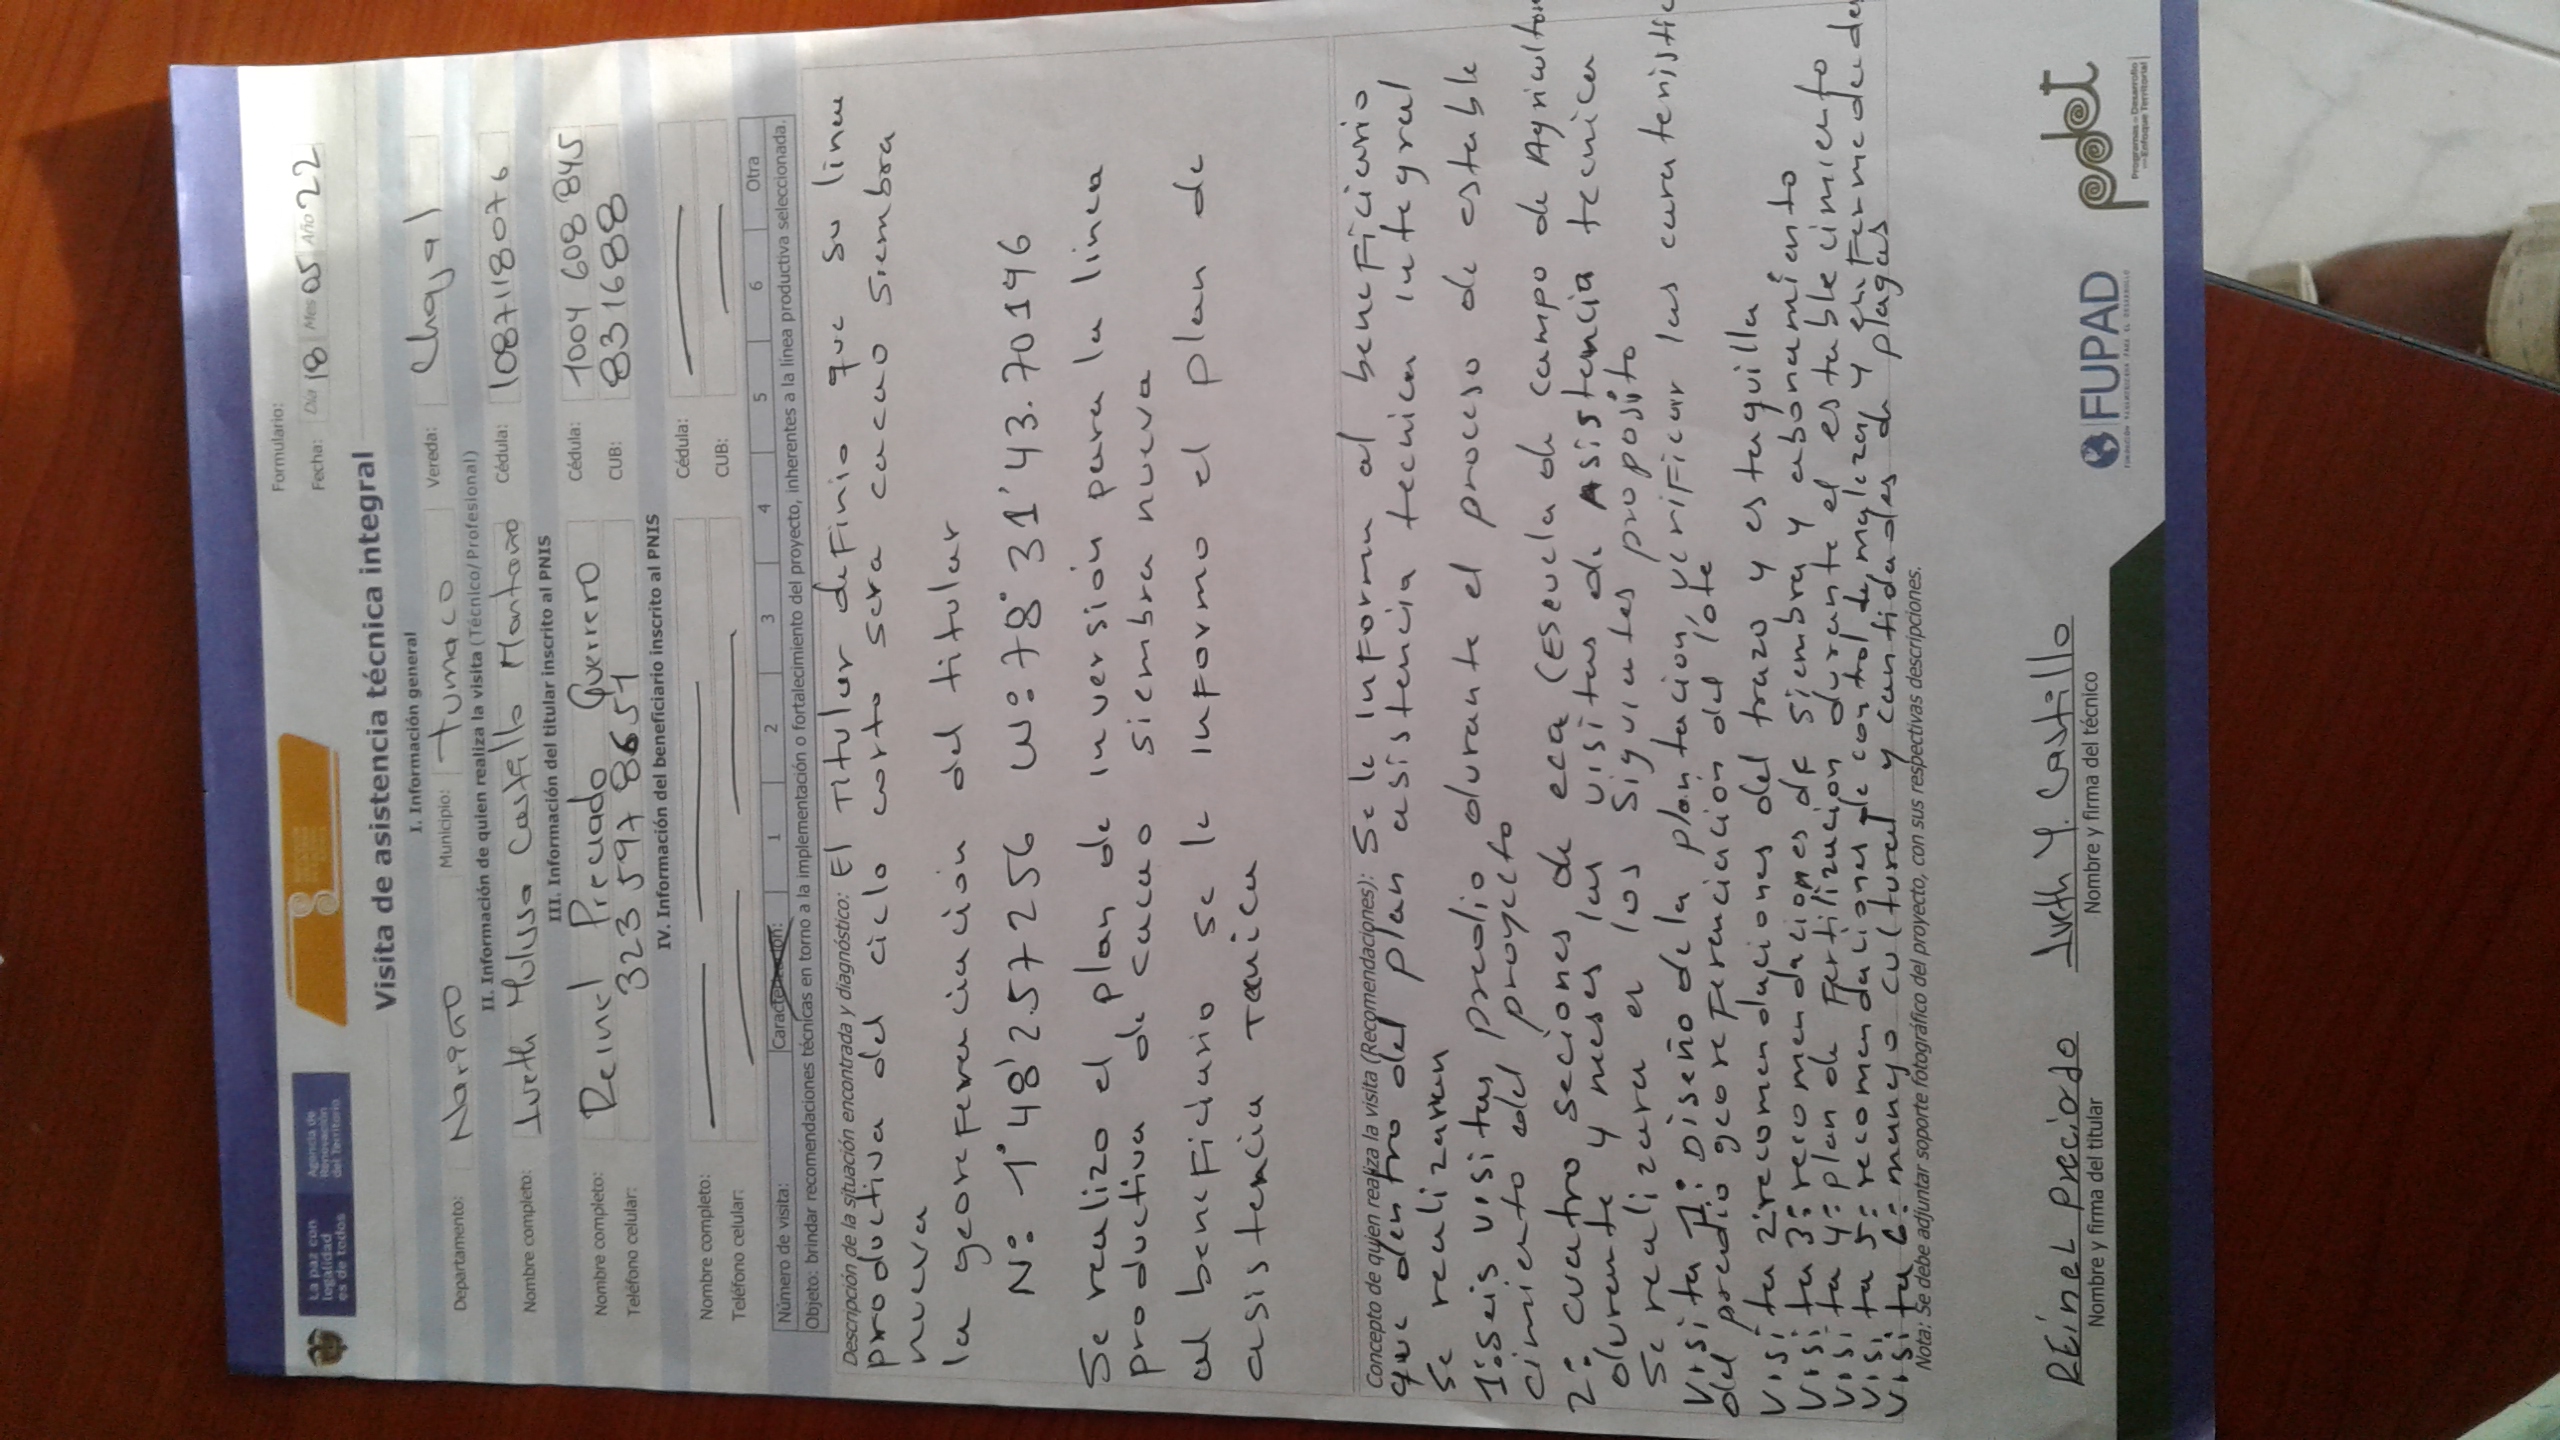 La paz con
legalidad
es de todos
Agencia de
Renovación
del Territorio
Formulario:
Fecha: Día 18 Mes 05 Año 22
Visita de asistencia técnica integral
I. Información general
Departamento: Nariño Municipio: Tumaco Vereda: Chajal
II. Información de quien realiza la visita (Técnico/Profesional)
Nombre completo: Castillo Montaño Cédula: 1087118076
III. Información del titular inscrito al PNIS
Nombre completo: Reinel Preciado Guerrero Cédula: 1004 608 845
Teléfono celular: 323 597 8651 CUB: 831688
IV. Información del beneficiario inscrito al PNIS
Nombre completo: Cédula:
Teléfono celular: CUB:
Número de visita: Caracterización: 1 2 3 4 5 6 Otra
Objeto: brindar recomendaciones técnicas en torno a la implementación o fortalecimiento del proyecto, inherentes a la línea productiva seleccionada.
Descripción de la situación encontrada y diagnóstico: El Titular deFinio que su linea
productiva del ciclo corto sera cacao siembra
nueva
la georeferenciación del titular
N: 1°48'2.57256 W:78°31'43.70196
Se realizo el plan de inversión para la linea
productiva de cacao siembra nueva
al beneFiciario se le inFormo el plan de
asistencia Tecnica
Concepto de quien realiza la visita (Recomendaciones): Se le inForma al beneFiciario
que dentro del plan asistencia tecnica integral
Se realizaran
1: seis visitas predio durante el proceso de estable
cimiento del proyecto
2: cuatro seciones de eca (Escuela de campo de Agricultor
durante 4 meses las visitas de Asistencia tecnica
Se realizara en los siguientes proposito
Visita 1: Diseño de la plantacion, veriFicar las caracteristic
del predio georeFerenciación del lote
Visita 2: recomendaciones del trazo y estaquilla
Visita 3: recomendaciones de siembra y abonamiento
Visita 4: plan de Fertilizacion durante el establecimiento
Visita 5: recomendaciones de control de malezas y enFermedades
Visita 6: manejo cultural y cantidades de plagas
Nota: Se debe adjuntar soporte fotográfico del proyecto, con sus respectivas descripciones.
REinel Preciado Iveth Y. Castillo
Nombre y firma del titular Nombre y firma del técnico
FUPAD
FUNDACIÓN PANAMERICANA PARA EL DESARROLLO
pdet
Programas de Desarrollo
con Enfoque Territorial